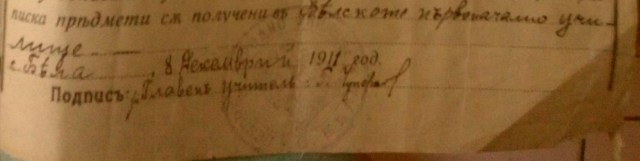 писка прѣдмети сѫ получени въ Бѣлското първоначално учи-
лище
с. Бѣла, 8 Декемврий 1911 год.
Подписъ: Главенъ учитель: